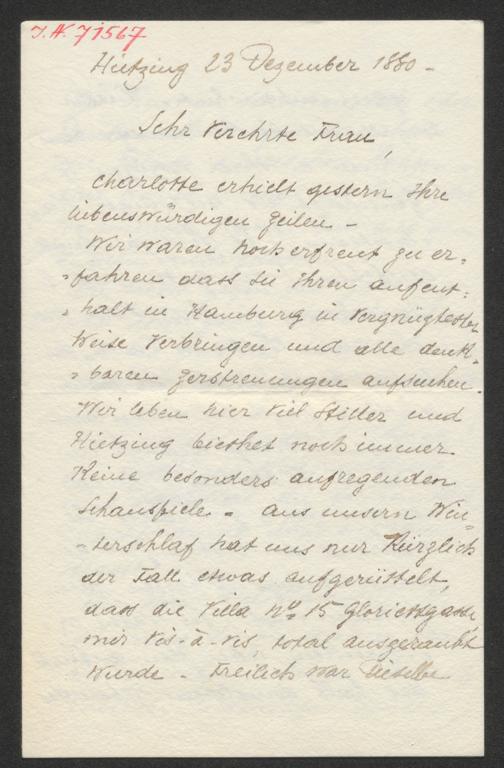 I. N. 71567
Hietzing 23 Dezember 1880 -
Sehr Verehrte Frau,
Charlotte erhielt gestern Ihre
liebenswürdigen Zeilen -
Wir waren hoch erfreut zu er-
-fahren dass Sie Ihren aufent-
-halt in Hamburg in Vergnügtester
Weise Verbringen und alle denk-
-baren Zerstreuungen aufsuchen.
Wir leben hier Viel Stiller und
Hietzing biethet noch immer
Keine besonders aufregenden
Schauspiele - aus unsern Win-
-terschlaf hat uns nur Kürzlich
der Fall etwas aufgerüttelt,
dass die Villa No 15 Gloriettgasse,
mir Vis-à-Vis, total ausgeraubt
wurde - Freilich war Dieselbe